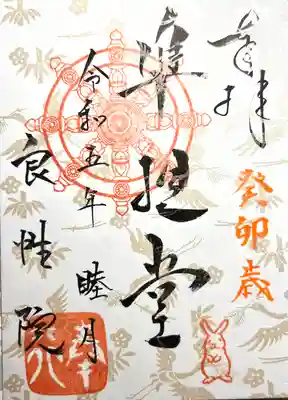 奉拝
癸卯歳
準胝堂
令和五年
睦月
良性院